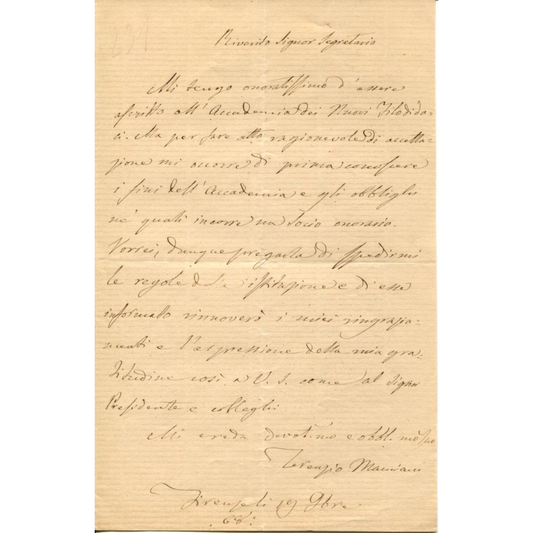 Riverito Signor Segretario
Mi tengo onoratissimo d'essere
ascritto all'Accademia dei Nuovi Filodida-
ci. Ma per fare atto ragionevole di accetta-
zione mi occorre di prima conoscere
i fini dell'Accademia e gli obblighi
ne' quali incorre un Socio onorario.
Vorrei, dunque pregarla di spedirmi
le regole istituzione e di esse
informato rinnoverò i miei ringrazia-
menti e l'espressione della mia gra-
titudine così a V. S. come al Signor
Presidente e colleghi
Mi creda devot.mo e obbl.mo
Terenzio Mamiani
Firenze li 19 9bre
66